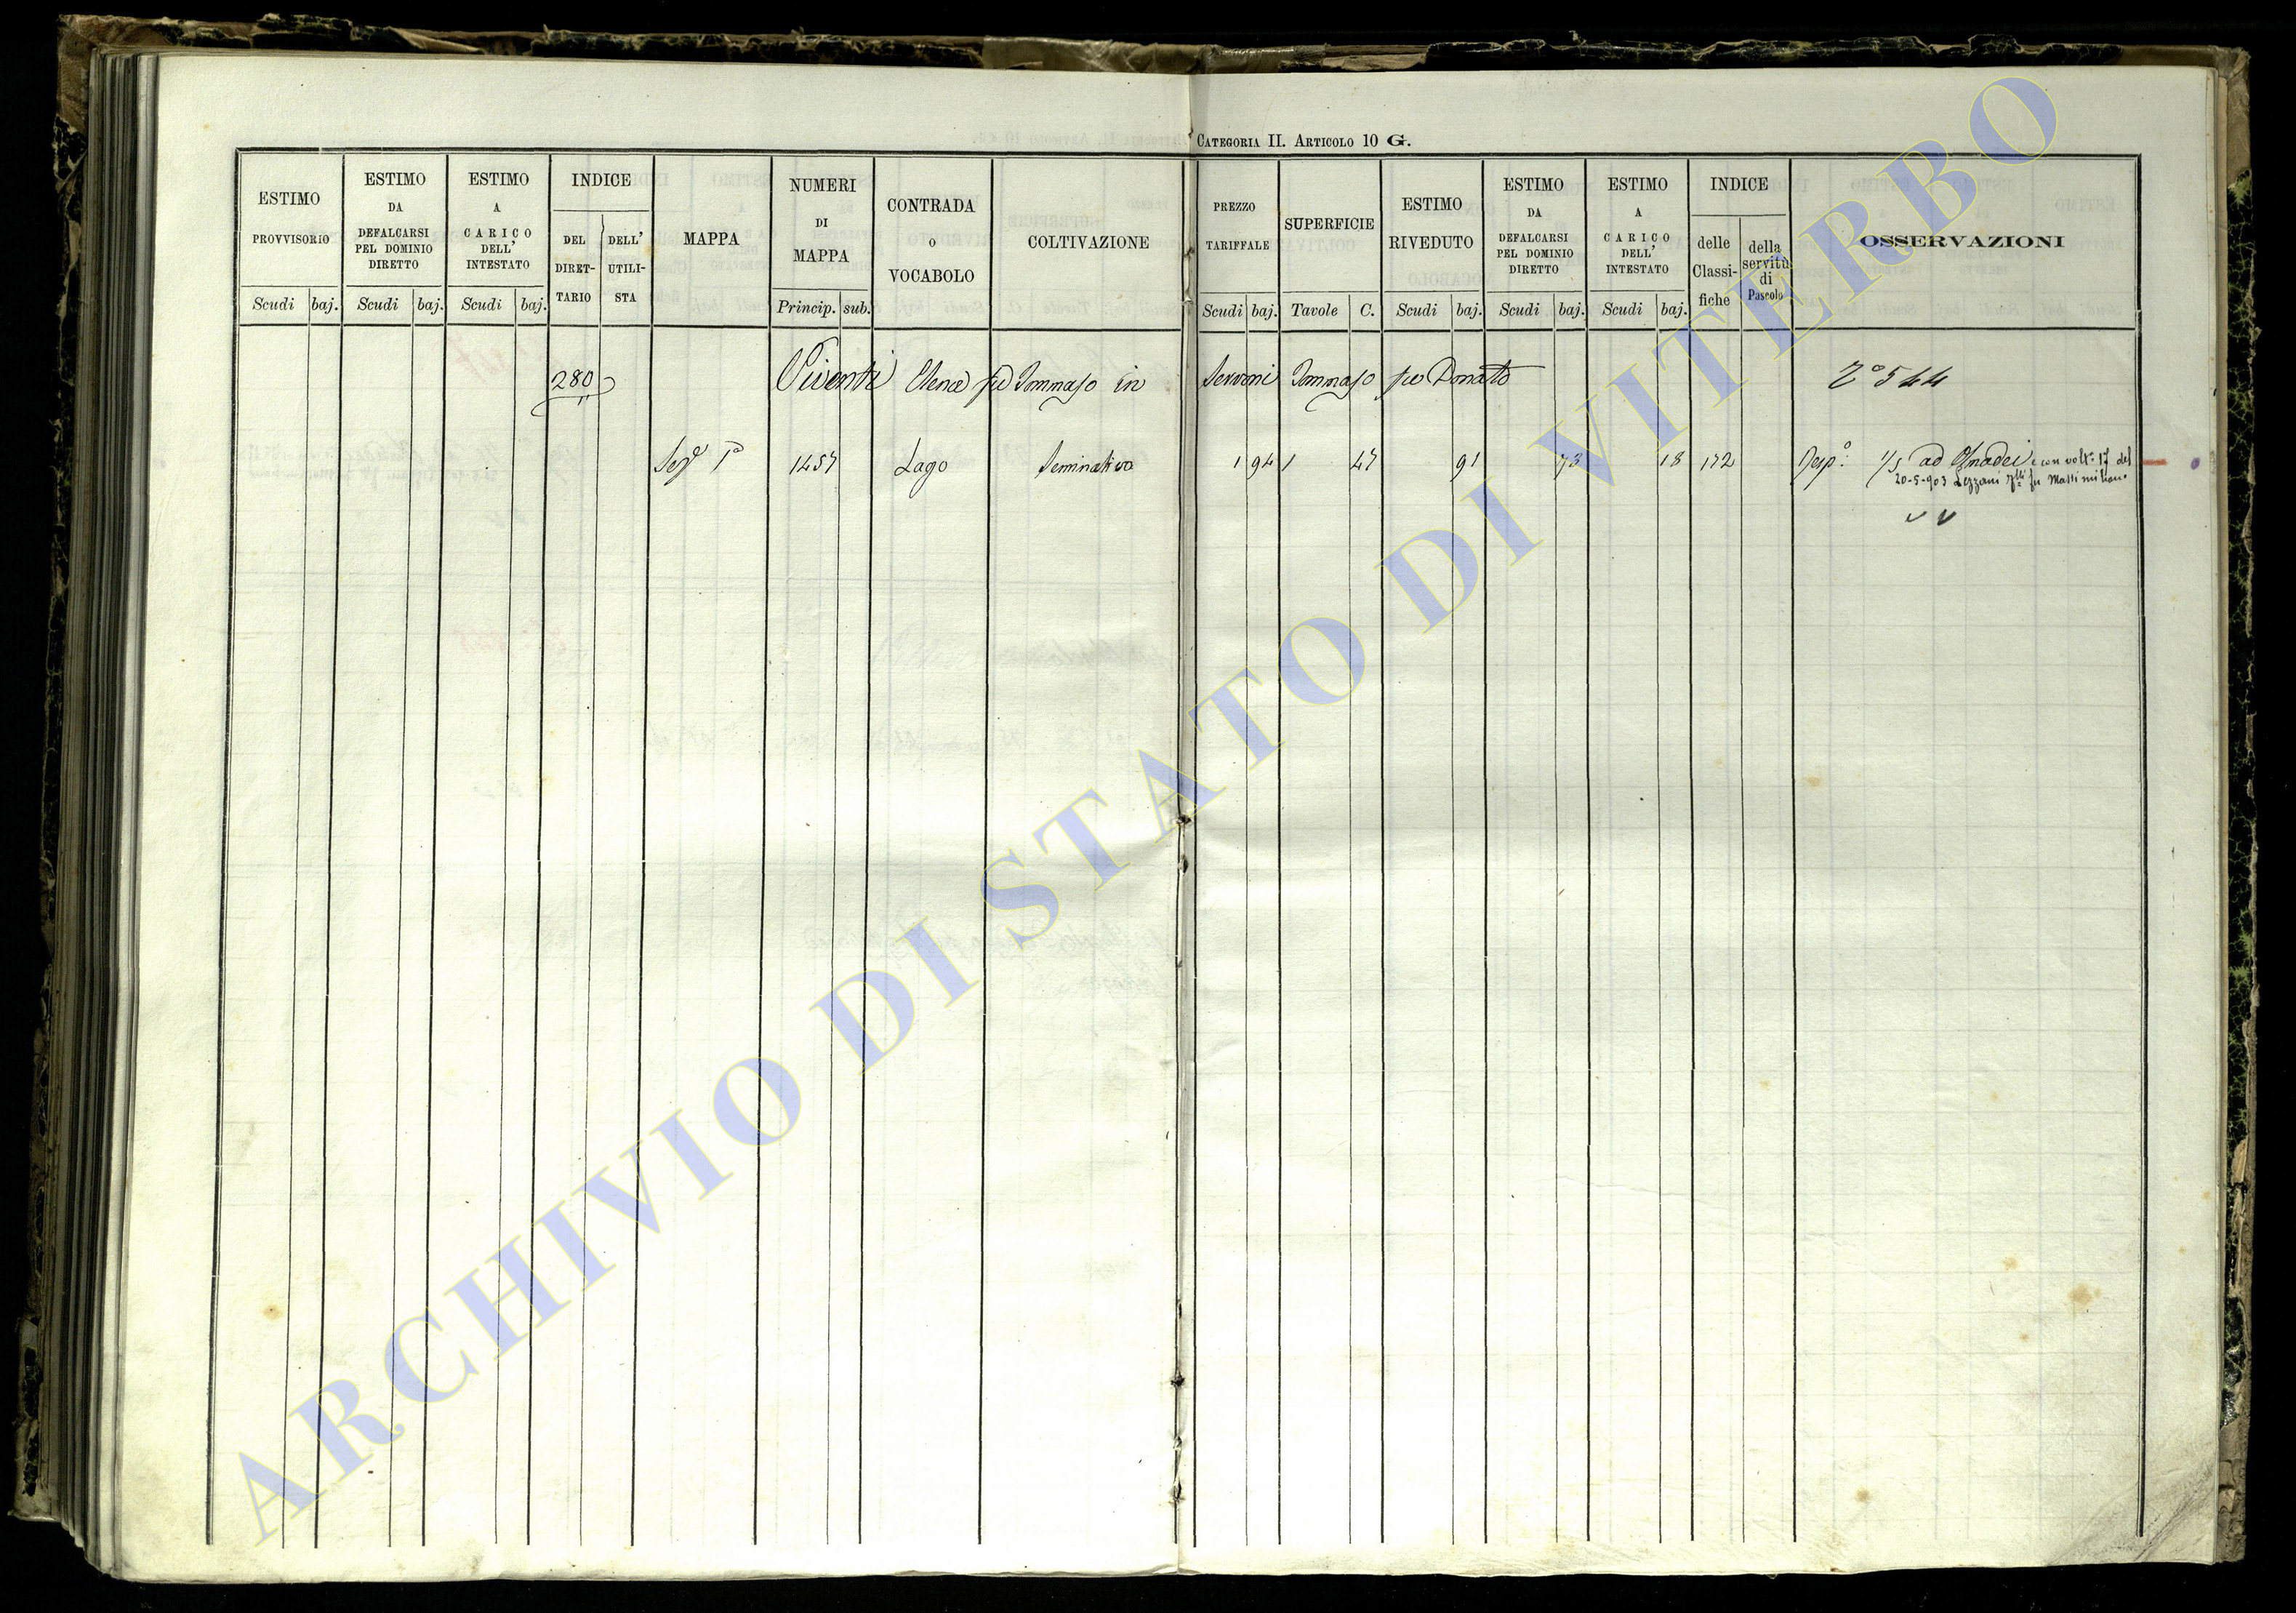 CATEGORIA II. ARTICOLO 10 G.
ESTIMO PROVVISORIO
ESTIMO DA DEFALCARSI PEL DOMINIO DIRETTO
ESTIMO A CARICO DELL' INTESTATO
INDICE
DEL DIRET-TARIO
DELL' UTILI-STA
MAPPA
NUMERI DI MAPPA
CONTRADA O VOCABOLO
COLTIVAZIONE
PREZZO TARIFFALE
SUPERFICIE
ESTIMO RIVEDUTO
ESTIMO DA DEFALCARSI PEL DOMINIO DIRETTO
ESTIMO A CARICO DELL' INTESTATO
INDICE
delle Classi-fiche
della servitù di Pascolo
OSSERVAZIONI
Scudi baj. Scudi baj. Scudi baj. Princip. sub. Scudi baj. Tavole C. Scudi baj. Scudi baj. Scudi baj.
280 Viventi Elena fu Tommaso in Servoni Tommaso fu Donato 544
Sez. 1a 1457 Lago Seminativo 1 94 1 47 91 73 18 172 Risp. 1/5 ad Amadei e con volt. 17 del
20-5-903 Lezzani fu Massimiliano
ARCHIVIO DI STATO DI VITERBO